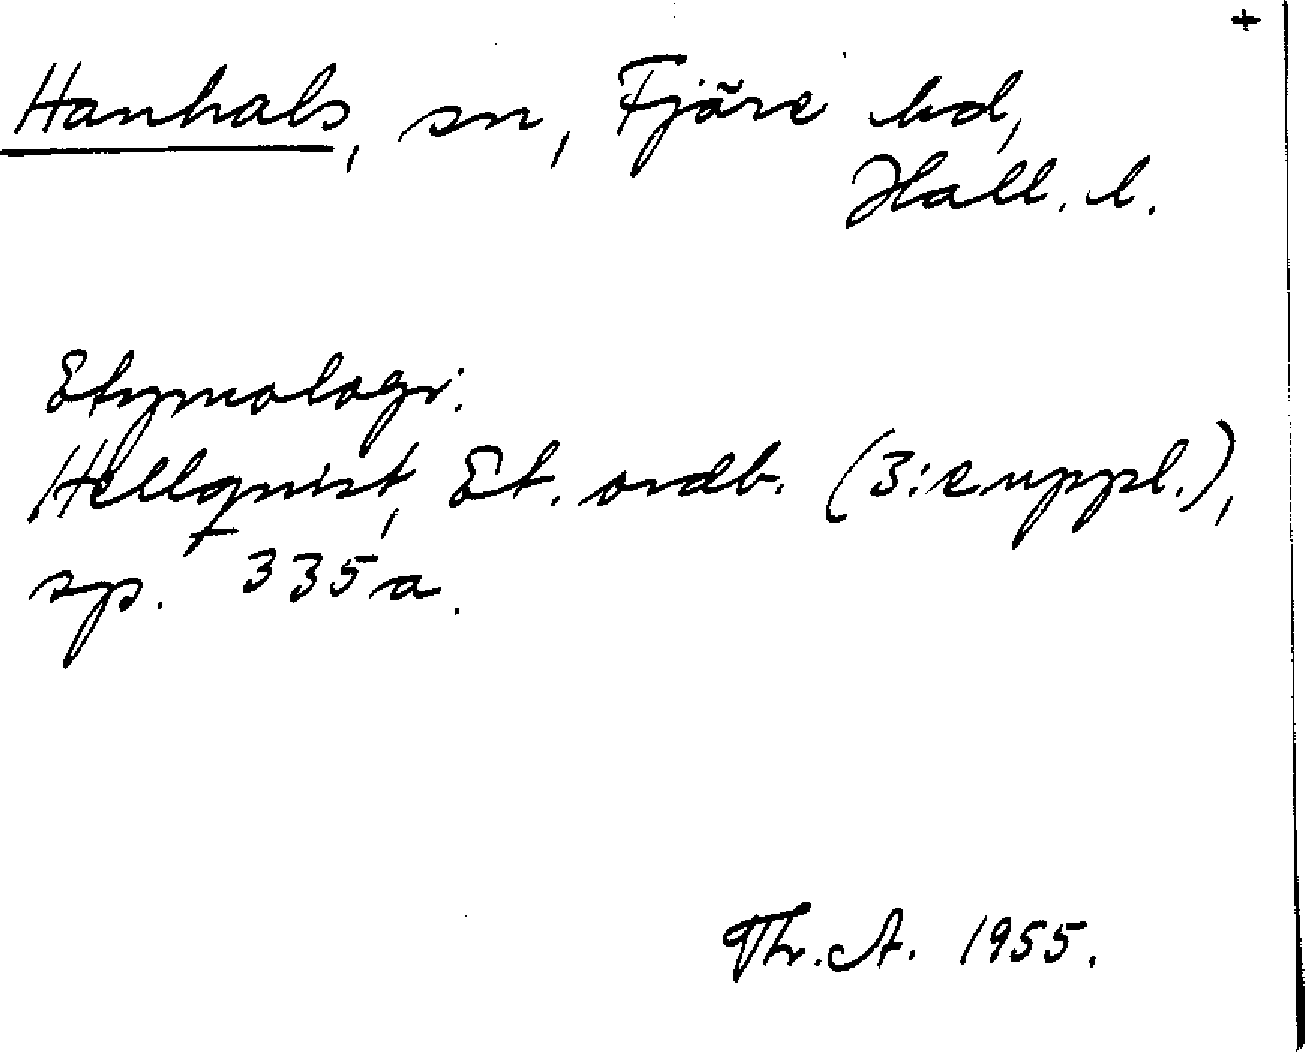 +
Hanhals, sn, Fjäre hd,
Hall. l.
Etymologi:
Hellquist, Et. ordb. (3:e uppl.),
sp. 335 a.
Th. A. 1955.